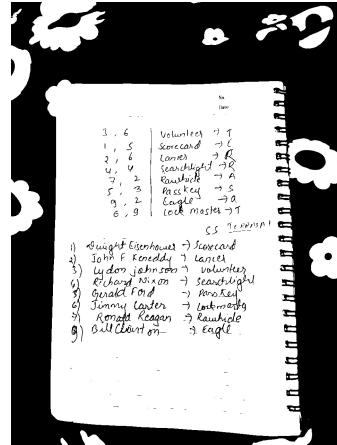 No.
Date
3, 6 | Volunteer → T
1, 5 | Scorecard → E
2, 6 | Lancer → R
4, 4 | Searchlight → R
7, 2 | Rawhide → A
5, 3 | Passkey → S
9, 2 | Eagle → a
6, 9 | Lock Master → T
1) Dwight Eisenhower → Scorecard
2) John F Keneddy → Lancer
3) Lydon johnson → Volunteer
4) Richard Nixon → Searchlight
5) Gerald Ford → Passkey
6) Jimmy Carter → Lockmaster
7) Ronald Reagan → Rawhide
9) Bill Clinton → Eagle